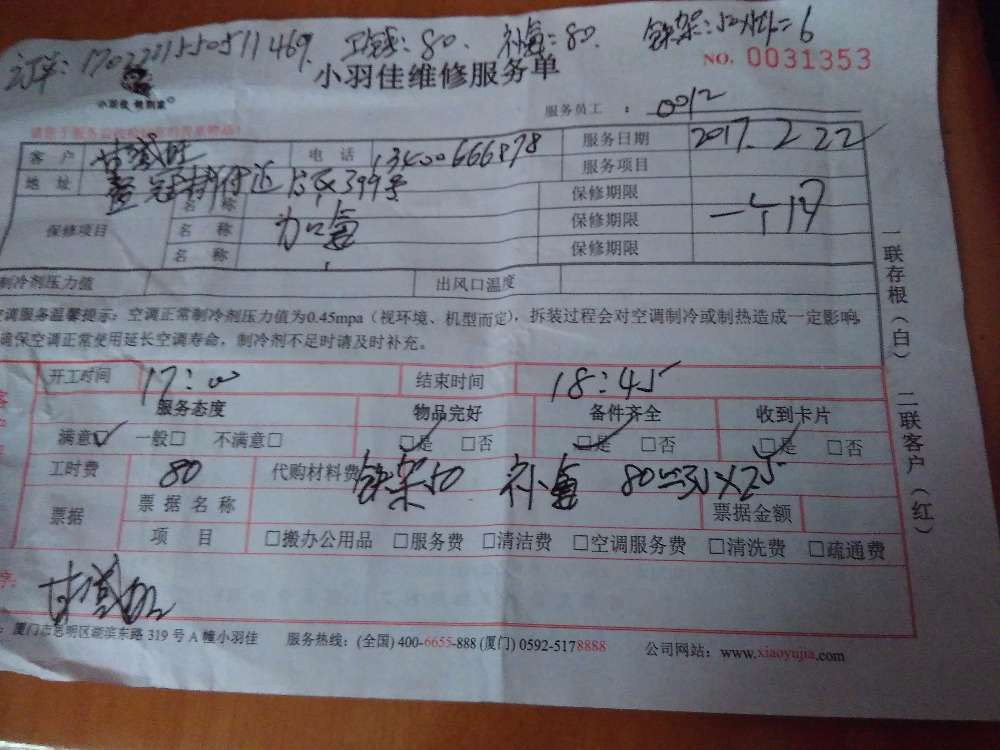 订单: 1702221550511469. 工钱: 80. 补氟: 80. 铁架: 50
小羽佳维修服务单
NO. 0031353
小羽佳
服务员工 : 0012
客 户 电 话 13400666878 服务日期 2017.2.22
地 址 399号 服务项目
保修项目 名 称 保修期限
名 称 加氟 保修期限 一个月
名 称 保修期限
制冷剂压力值 出风口温度
空调服务温馨提示：空调正常制冷剂压力值为0.45mpa（视环境、机型而定），拆装过程会对空调制冷或制热造成一定影响，
确保空调正常使用延长空调寿命，制冷剂不足时请及时补充。
开工时间 17:00 结束时间 18:45
服务态度 物品完好 备件齐全 收到卡片
满意☑ 一般□ 不满意□ ☑是 □否 ☑是 □否 ☑是 □否
工时费 80 代购材料费 铁架50 补氟 80
票据 票据名称 票据金额
项 目 □搬办公用品 □服务费 □清洁费 □空调服务费 □清洗费 □疏通费
字:
厦门市思明区 东路 319 号 A 幢小羽佳 服务热线：(全国) 400-6655-888 (厦门) 0592-5178888 公司网站：www.xiaoyujia.com
一联存根（白） 二联客户（红）